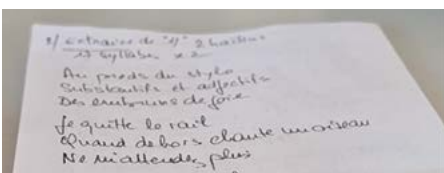 2/ Extraire de "4" 2 haïkus
17 syllabes x 2
Au pieds du stylo
Substantifs et adjectifs
Des embruns de joie
Je quitte le rail
Quand dehors chante un oiseau
Ne m'attendez plus